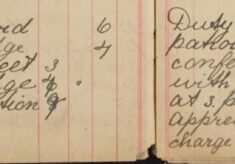 rd 6
dge 4
eet 3
dge 4
tion 9
Duty
patro
confe
with
at 3. p
appre
charge